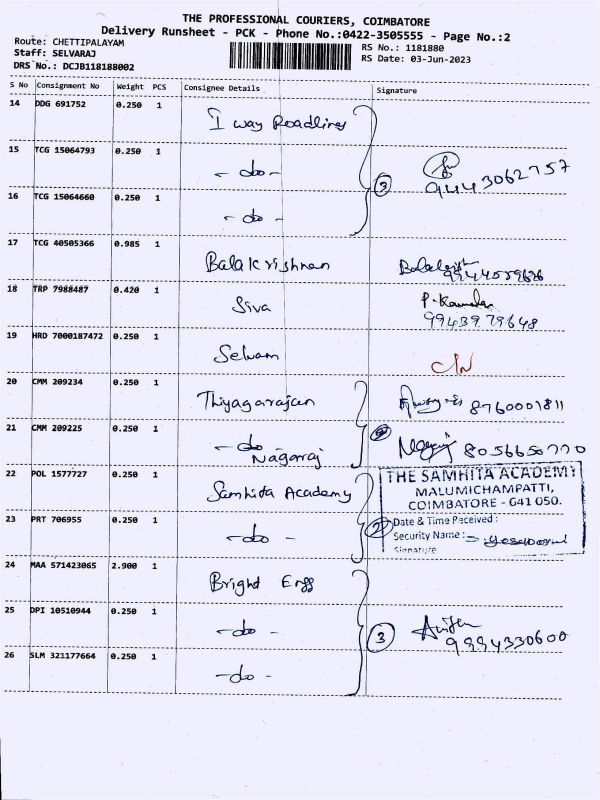 THE PROFESSIONAL COURIERS, COIMBATORE
Delivery Runsheet - PCK - Phone No.:0422-3505555 - Page No.:2
Route: CHETTIPALAYAM
Staff: SELVARAJ
DRS No.: DCJB118188002
RS No.: 1181880
RS Date: 03-Jun-2023
S No Consignment No Weight PCS Consignee Details Signature
14 DDG 691752 0.250 1 I way Roadlines
15 TCG 15064793 0.250 1 - do - 3 9443062757
16 TCG 15064660 0.250 1 - do -
17 TCG 40505366 0.985 1 Balakrishnan
18 TRP 7988487 0.420 1 Siva 9943979648
19 HRD 7000187472 0.250 1 Selvam
20 CMM 209234 0.250 1 Thiyagarajan 8760001811
21 CMM 209225 0.250 1 - do - Nagaraj 8056650770
22 POL 1577727 0.250 1 Samhita Academy
THE SAMHITA ACADEMY
MALUMICHAMPATTI,
COIMBATORE - 641 050.
23 PRT 706955 0.250 1 - do - 2
Date & Time Received :
Security Name :
Signature
24 MAA 571423065 2.900 1 Bright Engg
25 DPI 10510944 0.250 1 - do - 3 9994330600
26 SLM 321177664 0.250 1 - do -